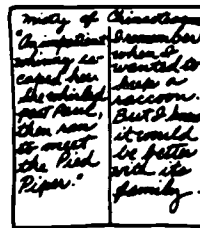 Misty of Chincoteague
"An impatient
whinny es-
caped her.
She whirled
past Paul,
then ran
to meet
the Pied
Piper."
I remember
when I
wanted to
keep a
raccoon.
But I knew
it would
be better
with its
family.